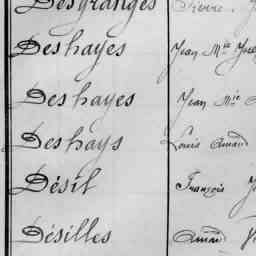 Desgranges Pierre
Deshayes Jean Mie
Deshayes Jean Mie
Deshays Louis Amand
Désil François
Désilles Amand